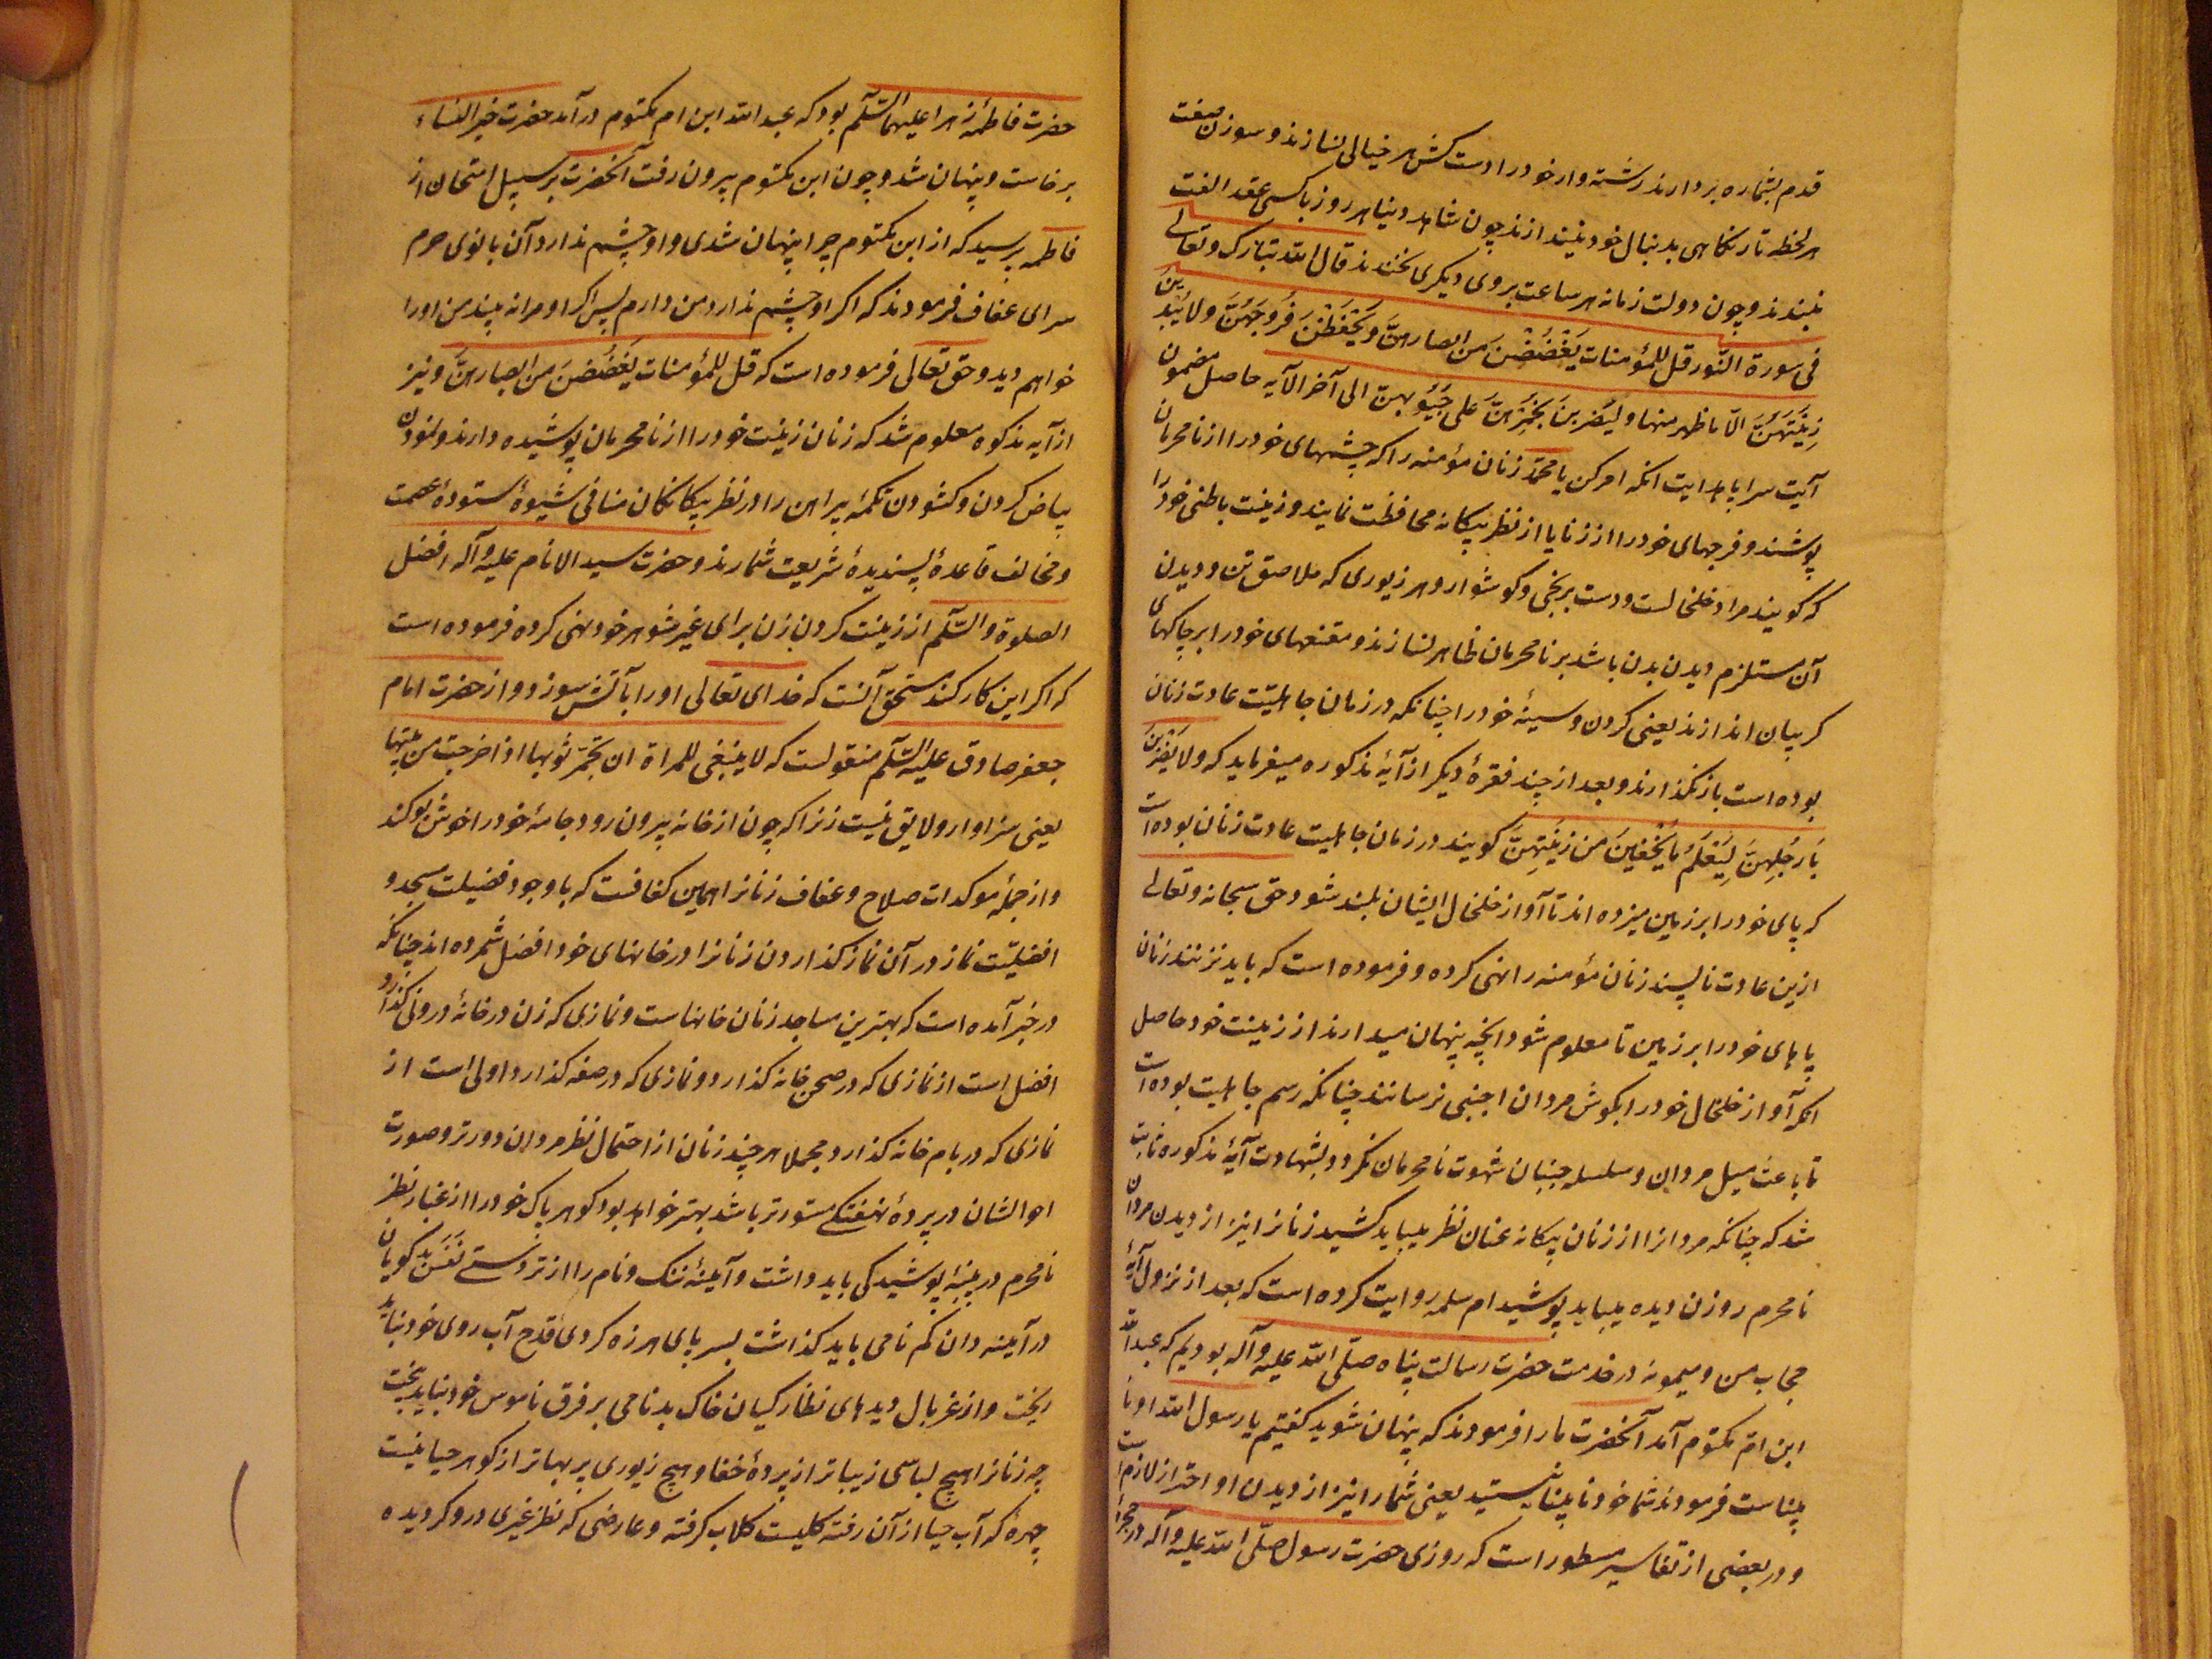 قدم بشماره بردارند رشته وار خود را دست کش هر خیالی نسازند و سوزن صفت
هر لحظه تار نگاهی بدنبال خود نیندازند چون شاهد دنیا هر روز با کسی عقد الفت
نبندند و چون دولت زمانه هر ساعت بروی دیگری نخندند قال الله تبارک و تعالی
فی سورة النور قل للمؤمنات یَغْضُضْنَ من ابصارهنَّ وَیَحْفَظْنَ فُرُوجَهُنَّ ولا یُبْدینَ
زِینَتَهُنَّ الّا ما ظهر منها ولیَضربنَ بخُمُرِهنَّ علی جُیُوبهنّ الی آخر الآیه حاصل مضمون
آیت سراپا هدایت انکه امر کن یا محمّد زنان مؤمنه را که چشمهای خود را از نامحرمان
پوشند و فرجهای خود را از زنا یا از نظر بیکانه محافظت نمایند و زینت باطنی خود را
که کویند مراد خلخالست و دست برنجی و کوشوار و هر زیوری که ملاصق تن و دیدن
آن مستلزم دیدن بدن باشد بر نامحرمان ظاهر نسازند و مقنعهای خود را بر چاکهای
کریبان اندازند یعنی کردن و سینهٔ خود را چنانکه در زمان جاهلیّت عادت زنان
بوده است باز نکذارند و بعد از چند فقرهٔ دیکر از آیهٔ مذکوره میفرماید که ولا یَضْرِبْنَ
بَارجُلِهِنَّ لِیُعْلَمُ مَا یُخْفِینَ من زِینَتِهِنَّ کویند در زمان جاهلیت عادت زنان بوده است
که پای خود را بر زمین میزده اند تا آواز خلخال ایشان بلند شود حق سبحانه و تعالی
ازین عادت ناپسند زنان مؤمنه را نهی کرده و فرموده است که باید نزنند زنان
پاهای خود را بر زمین تا معلوم شود انچه پنهان میدارند از زینت خود حاصل
انکه آواز خلخال خود را بکوش مردان اجنبی نرسانند چنانکه رسم جاهلیت بوده است
تا باعث میل مردان و سلسله جنبان شهوت نامحرمان نکردد و بشهادت آیهٔ مذکوره ثابت
شد که چنانکه مردانرا از زنان بیکانه عنان نظر میباید کشید زنانرا نیز از دیدن مردان
نامحرم روزن دیده میباید پوشید ام سلمه روایت کرده است که بعد از نزول آیهٔ
حجاب من و میمونه در خدمت حضرت رسالت پناه صلّی الله علیه و آله بودیم که عبدالله
ابن امّ مکتوم آمد آنحضرت ما را فرمودند که پنهان شوید کفتیم یا رسول الله او نا
بیناست فرمودند شما خود نابینا نیستید یعنی شما را نیز از دیدن او احتراز لازم است
و در بعضی از تفاسیر مسطور است که روزی حضرت رسول صلّی الله علیه و آله در حجرهٔ
حضرت فاطمهٔ زهرا علیها السّلم بود که عبدالله ابن ام مکتوم در آمد حضرت خیر النساء
برخاست و پنهان شد و چون ابن مکتوم بیرون رفت آنحضرت بر سبیل امتحان از
فاطمه پرسید که از ابن مکتوم چرا پنهان شدی و او چشم ندارد آن بانوی حرم
سرای عفاف فرمودند که اکر او چشم ندارد من دارم پس اکر او مرا نه بیند من او را
خواهم دید و حق تعالی فرموده است که قل للمؤمنات یَغضُضنَ من ابصارهنَّ و نیز
از آیه مذکوه معلوم شد که زنان زینت خود را از نامحرمان پوشیده دارند و نمودن
بیاض کردن و کشودن تکمهٔ پیراهن را در نظر بیکانکان منافی شیوهٔ ستودهٔ عصمت
و مخالف قاعدهٔ پسندیدهٔ شریعت شمارند و حضرت سید الانام علیه و آله افضل
الصلوة و السّلم از زینت کردن زن برای غیر شوهر خود نهی کرده فرموده است
که اکر این کار کند مستحق آنست که خدای تعالی او را بآتش سوزد و از حضرت امام
جعفر صادق علیه السّلم منقولست که لا ینبغی للمراة ان تجمّر ثوبها اذا خرجت من بیتها
یعنی سزاوار و لایق نیست زنرا که چون از خانه بیرون رود جامهٔ خود را خوش بو کند
و از جملهٔ موکدات صلاح و عفاف زنانرا همین کفافست که با وجود فضیلت مسجد و
افضلیّت نماز در آن نماز کذاردن زنانرا در خانهای خود افضل شمرده اند چنانکه
در خبر آمده است که بهترین مساجد زنان خانهاست و نمازی که زن در خانهٔ درونی کذارد
افضل است از نمازی که در صحن خانه کذارد و نمازی که در صفه کذارد اولی است از
نمازی که در بام خانه کذارد مجملا هر چند زنان از احتمال نظر مردان دورتر و صورت
احوالشان در پردهٔ نهفتکی مستورتر باشد بهتر خواهد بود کوهر پاک خود را از غبار نظر
نامحرم در پنبهٔ پوشیدکی باید داشت و آیینهٔ ننک و نام را از تردستی نفس بد کویان
در آیینه دان کم نامی باید کذاشت بسر پای هرزه کردی قدح آب روی خود نباید
ریخت و از غربال دیدهای نظارکیان خاک بدنامی بر فرق ناموس خود نباید بیخت
چه زنانرا هیچ لباسی زیباتر از پردهٔ خفا و هیچ زیوری پر بهاتر از کوهر حیا نیست
چهرهٔ که آب حیا از آن رفته کلیست کلاب کرفته و عارضی که نظر غیری درو کردیده